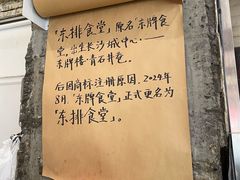 「东排食堂」原名「东牌食
堂」，出生长沙城中心——
东牌楼·青石井巷。
后因商标注册原因，2024年
8月，「东牌食堂」正式更名为
「东排食堂」。